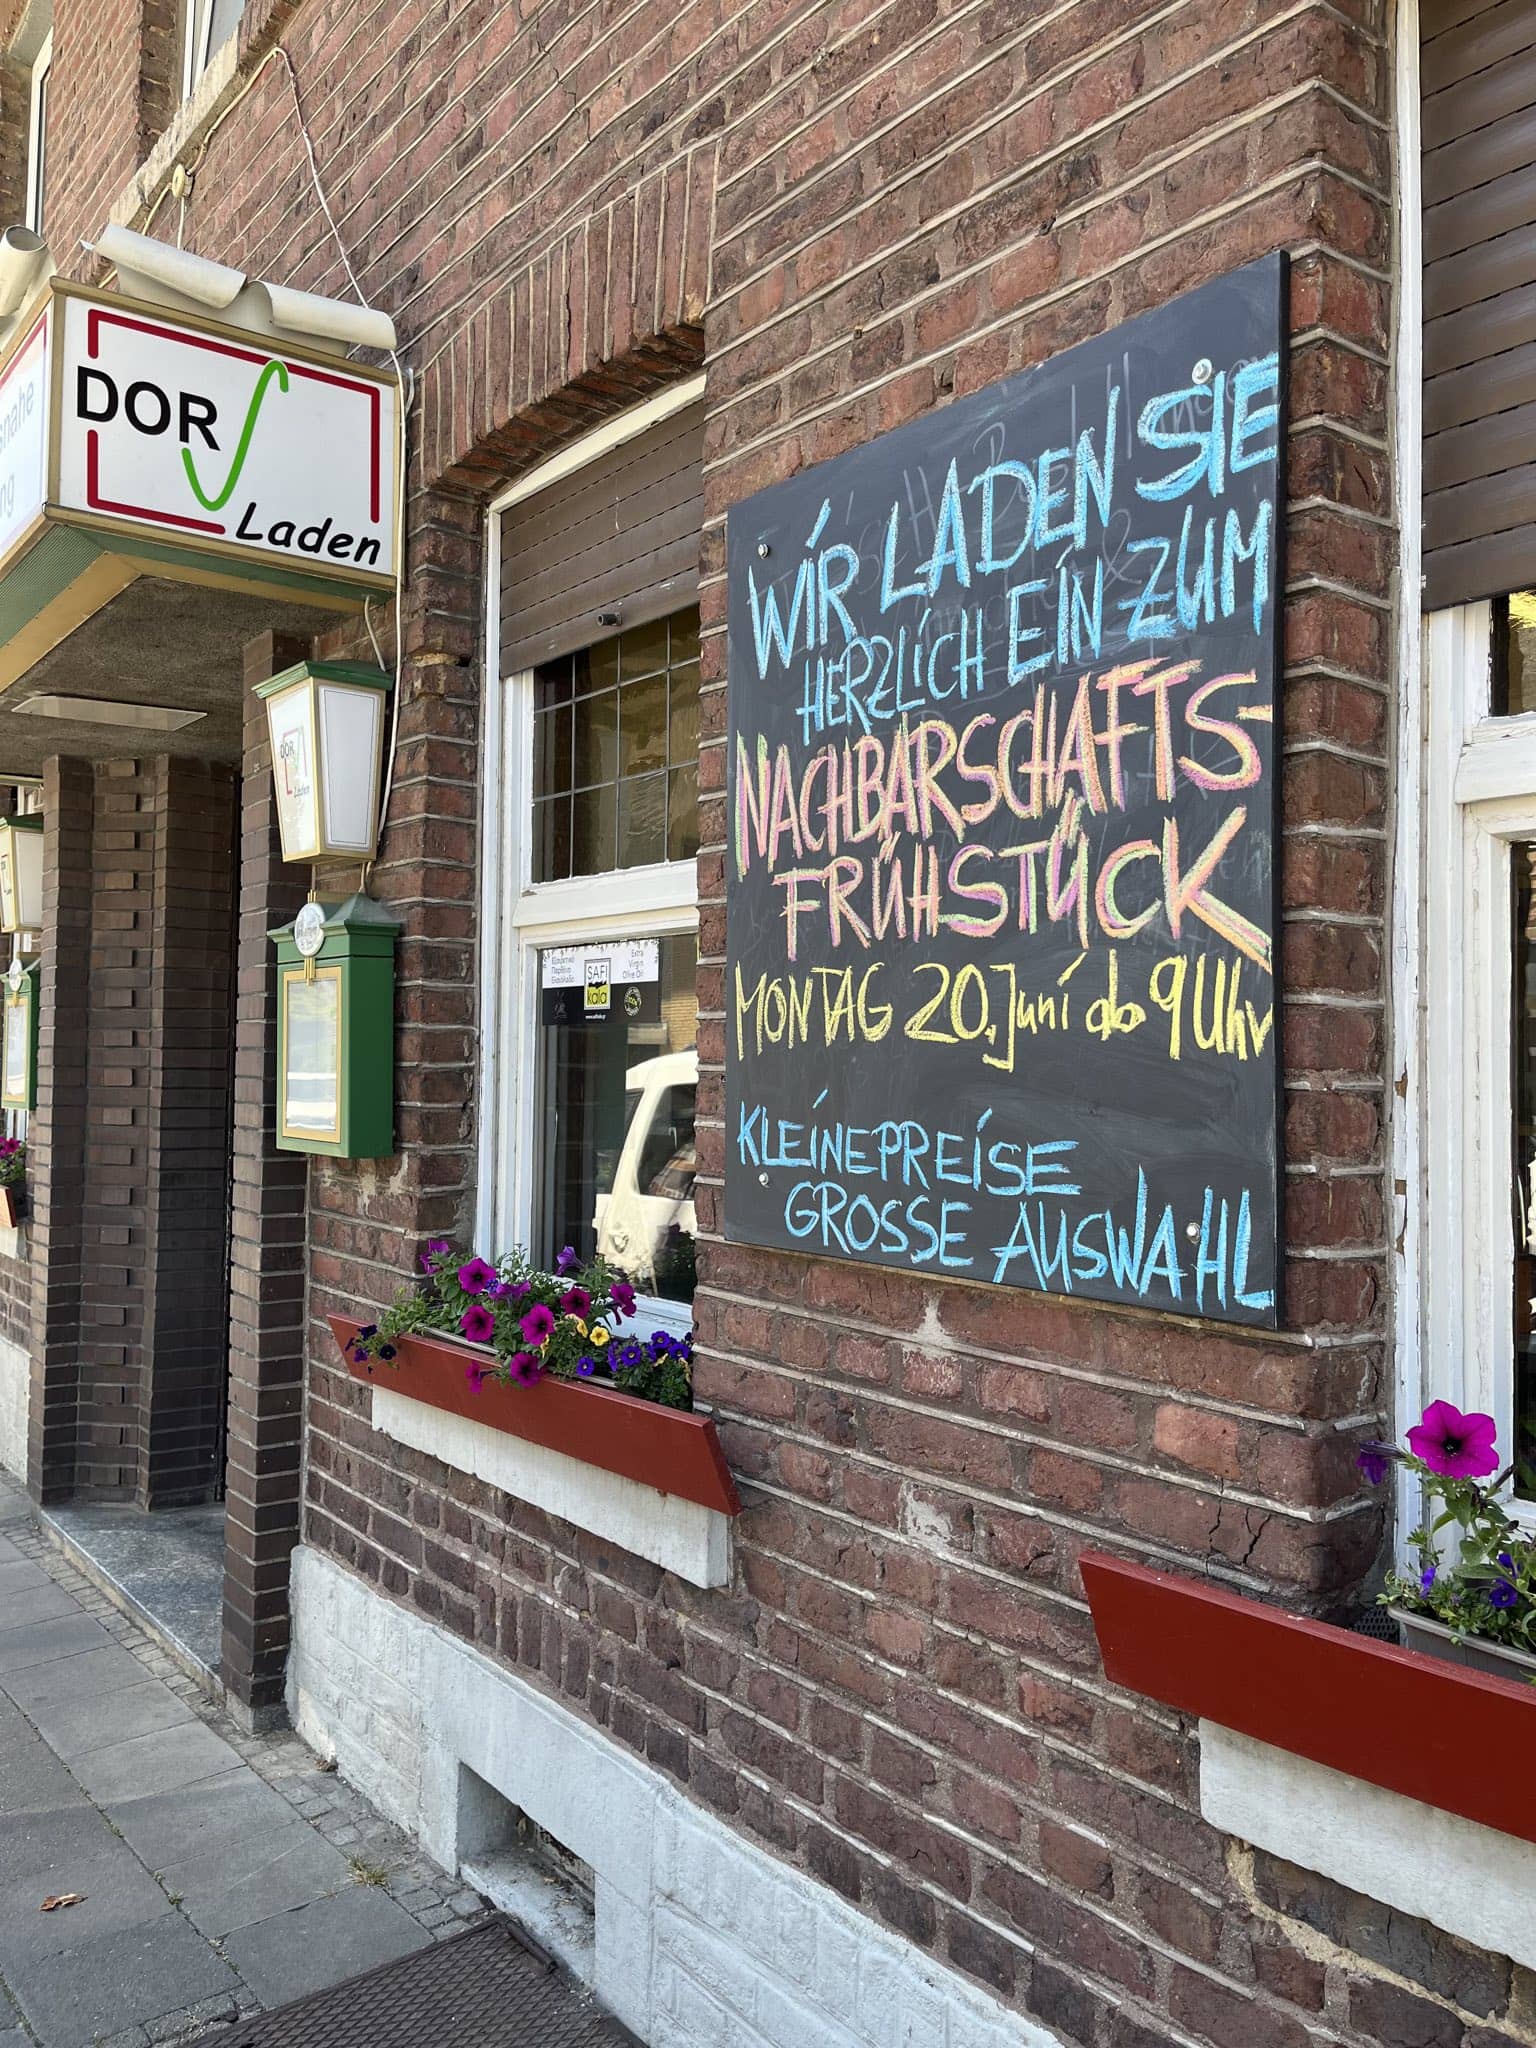 DORf
Laden
WIR LADEN SIE
HERZLICH EIN ZUM
NACHBARSCHAFTS-
FRÜHSTÜCK
MONTAG 20. Juni ab 9 Uhr
KLEINE PREISE
GROSSE AUSWAHL
DORf
Laden
Extra
Virgin
Olive Oil
SAFI
kala